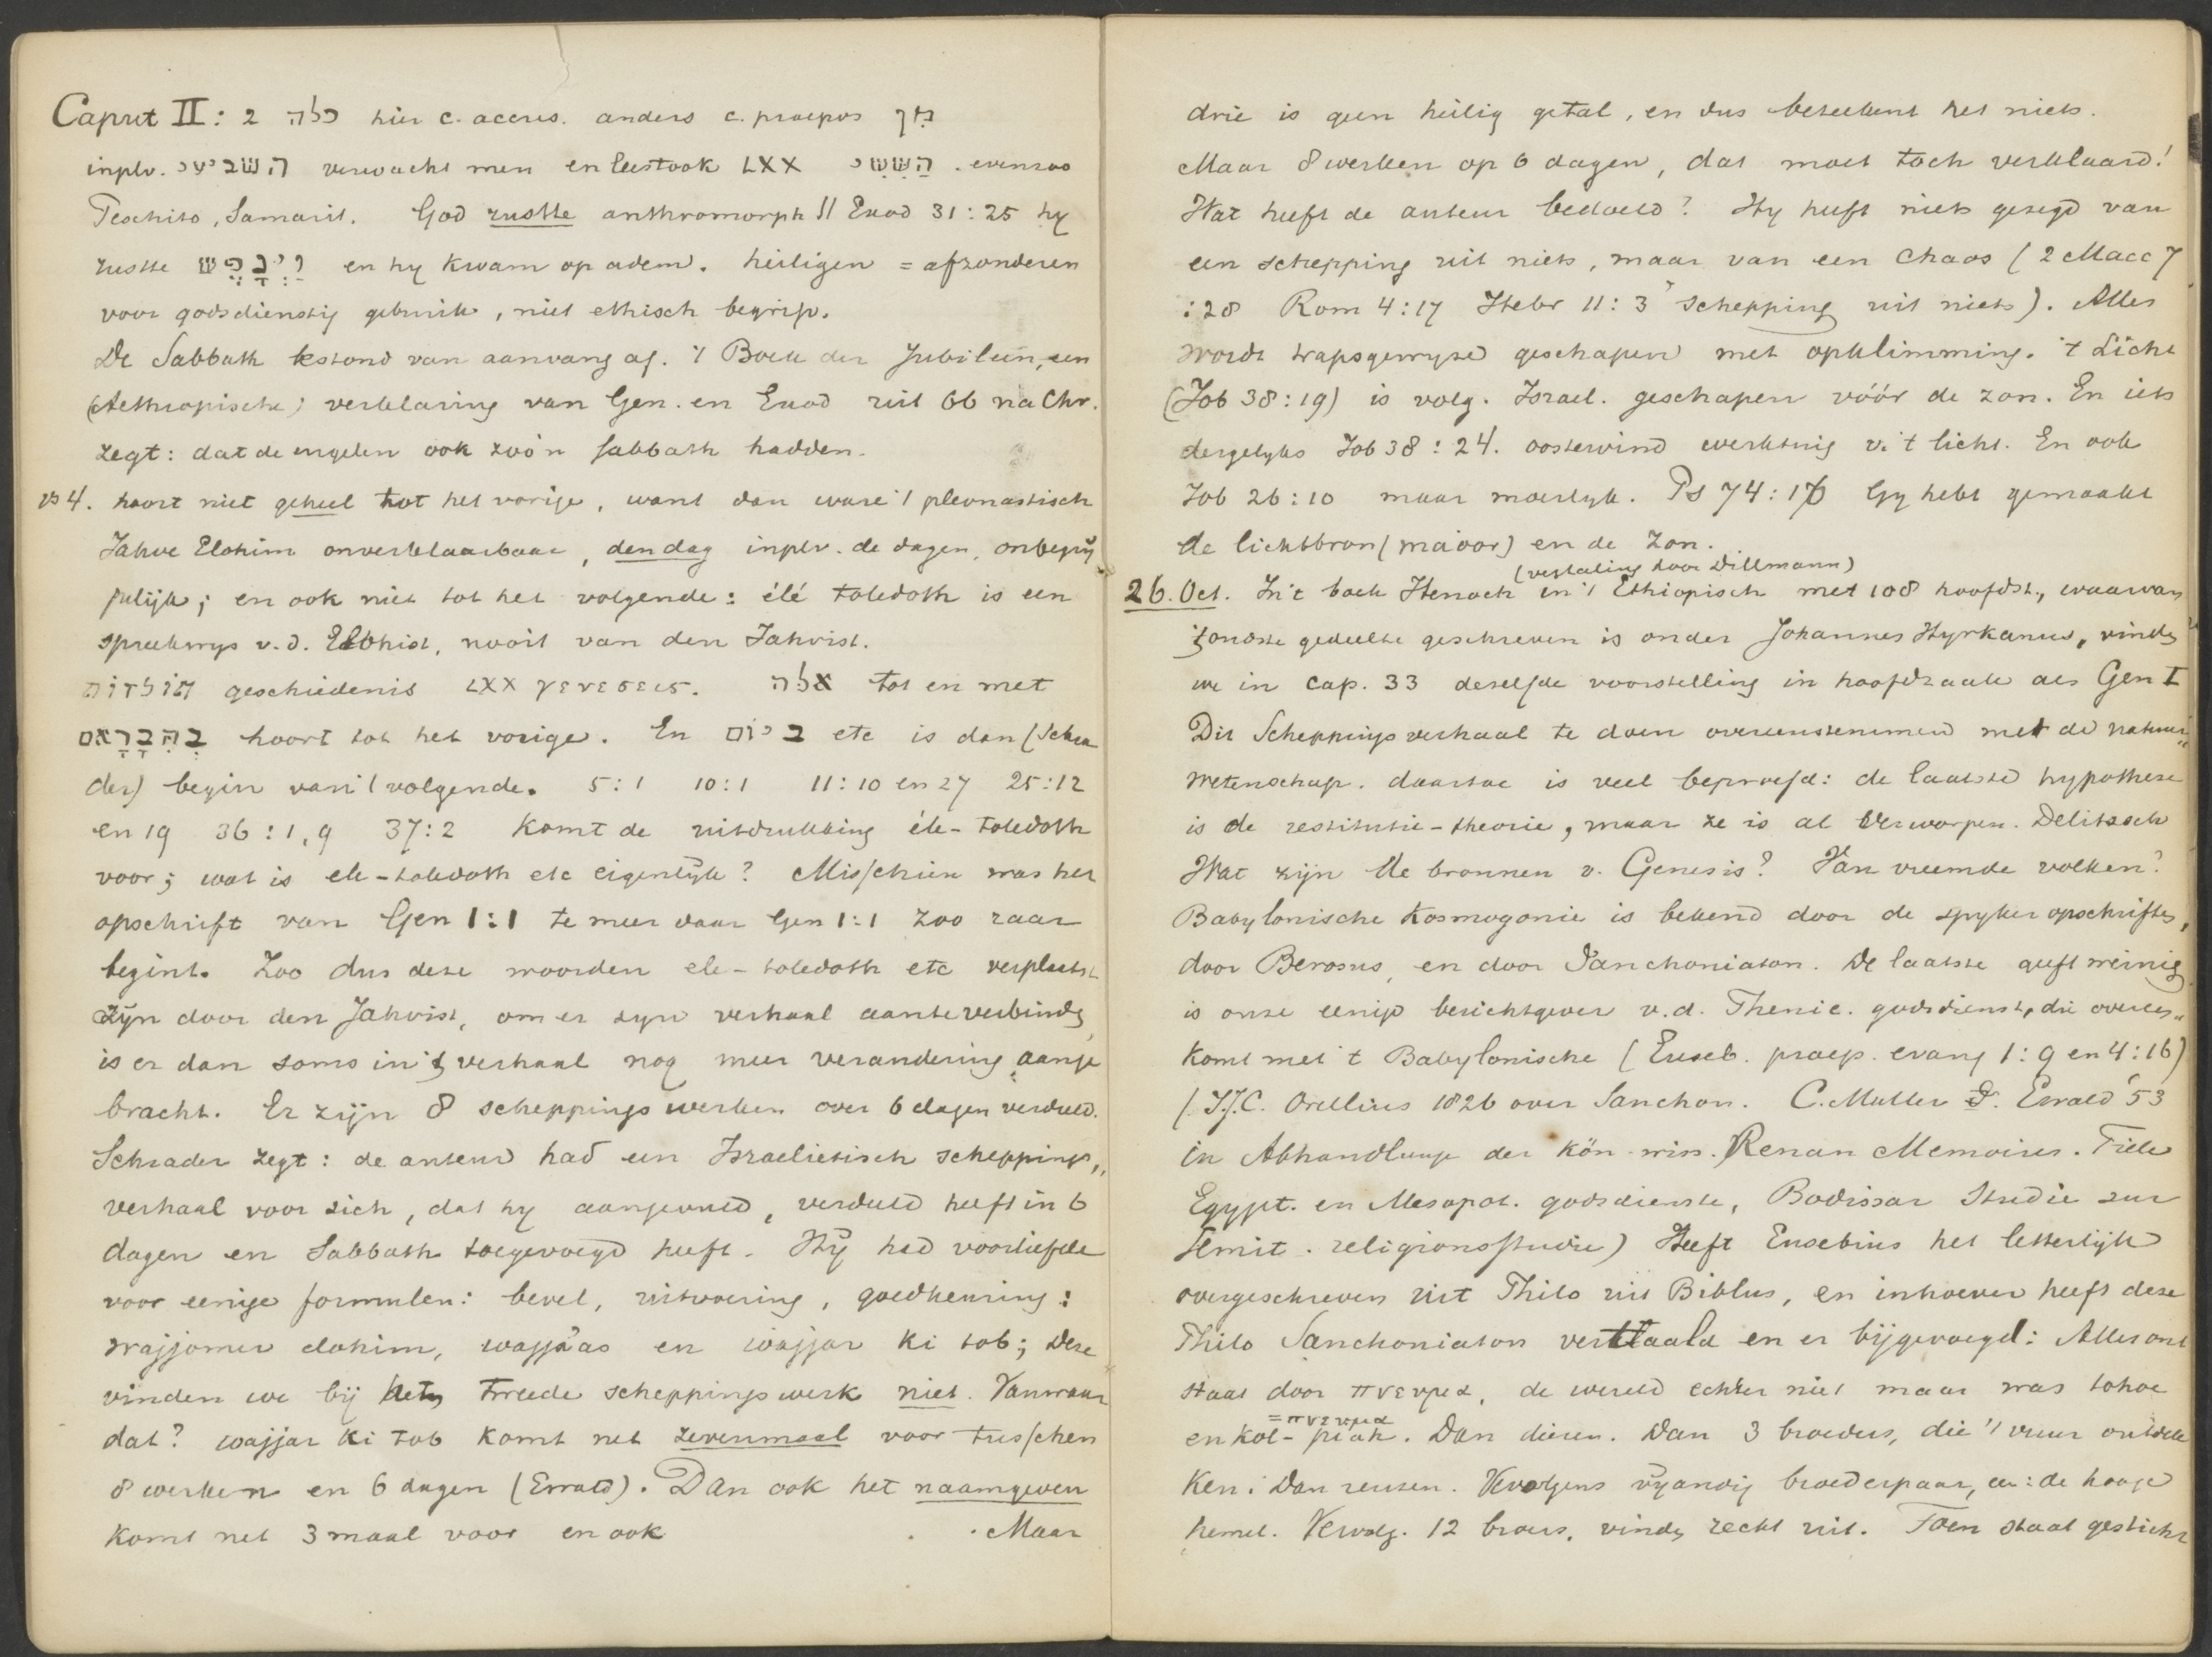 Caput II: 2 כלה hier c. accus. anders c. praepos מִן
inplv. השביעי verwacht men en leest ook LXX הַשִּׁשִּׁי . evenzoo
Peschito, Samarit. God rustte anthromorph || Exod 31:25 hy
rustte וַיִּנָּפֶשׁ en hy kwam op adem. heiligen = afzonderen
voor godsdienstig gebruik, niet ethisch begrip.
De Sabbath bestond van aanvang af. 't Boek der Jubileën, een
(Aethiopische) verklaring van Gen. en Exod uit 66 na Chr.
zegt: dat de engelen ook zoo'n sabbath hadden.
vs 4. hoort niet geheel tot het vorige, want dan ware 't pleonastisch
Jahve Elohim onverklaarbaar, den dag inplv. de dagen, onbegrij
pelijk; en ook niet tot het volgende: élé toledoth is een
spreekwys v.d. Elohist, nooit van den Jahvist.
תולדות geschiedenis LXX γενεσεις. אלה tot en met
בְּהִבָּרְאָם hoort tot het vorige. En ביום etc is dan (Schra
der) begin van 't volgende. 5:1 10:1 11:10 en 27 25:12
en 19 36:1,9 37:2 komt de uitdrukking éle-toledoth
voor; wat is ele-toledoth etc eigenlijk? Misschien was het
opschrift van Gen 1:1 te meer daar Gen 1:1 zoo raar
begint. Zoo dus deze woorden ele-toledoth etc verplaatst
zijn door den Jahvist, om er zyn verhaal aan te verbinden
is er dan soms in 't verhaal nog meer verandering aange
bracht. Er zijn 8 scheppingswerken over 6 dagen verdeeld.
Schrader zegt: de auteur had een Israelietisch scheppings„
verhaal voor zich, dat hy aangevuld, verdeeld heeft in 6
dagen en Sabbath toegevoegd heeft. Hij had voorliefde
voor eenige formulen: bevel, uitvoering, goedkeuring:
wajjomer elohim, wajja'as en wajjar ki tob; Deze
vinden we bij het tweede scheppingswerk niet. Vanwaar
dat? wajjar ki tob komt net zevenmaal voor tusschen
8 werken en 6 dagen (Ewald). Dan ook het naamgeven
komt net 3 maal voor en ook . . Maar
drie is geen heilig getal, en dus beteekent het niets.
Maar 8 werken op 6 dagen, dat moet toch verklaard!
Wat heeft de auteur bedoeld? Hy heeft niets gezegd van
een schepping uit niets, maar van een Chaos (2 Macc 7
:28 Rom 4:17 Hebr 11:3 schepping uit niets). Alles
wordt trapsgewyse geschapen met opklimming. 't Licht
(Job 38:19) is volg. Israel. geschapen vóór de zon. En iets
dergelyks Job 38:24. oostewind werktuig v. 't licht. En ook
Job 26:10 maar moeilyk. Ps 74:16 Gy hebt gemaakt
de lichtbron (maoor) en de zon.
(vertaling door Dillmann)
26. Oct. In 't boek Henoch in 't Ethiopisch met 108 hoofdst., waarvan
't oudste gedeelte geschreven is onder Johannes Hyrkanus, vinden
we in Cap. 33 deselfde voorstelling in hoofdzaak als Gen I
Dit Scheppingsverhaal te doen overeenstemmen met de natuur„
wetenschap. daartoe is veel beproefd: de laatste hypothese
is de restitutie-theorie, maar ze is al verworpen. Delitzsch
Wat zijn de bronnen v. Genesis? Van vreemde volken?
Babylonische Kosmogonie is bekend door de spyker opschriften,
door Berosus, en door Sanchoniaton. De laatste geeft weinig
is onze eenige berichtgever v.d. Phenic. godsdienst, die overeen„
komt met 't Babylonische (Euseb. praep. evang 1:9 en 4:16)
(J.C. Orellius 1826 over Sanchon. C. Muller Ewald '53
in Abhandlunge der kön. wiss. Renan Memoires. Tiele
Egypt. en Mesopot. godsdienste, Bodissar Studie zur
Semit. religionsstudie) Heeft Eusebius het letterlijk
overgeschreven uit Philo uit Biblus, en inhoever heeft deze
Philo Sanchoniaton vertaald en er bijgevoegd: Alles ont
staat door πνευμα, de wereld echter niet maar was tohoe
= πνευμα
en kol- piah. Dan dieren. Dan 3 broeders, die 't vuur ontdek
ken. Dan reuzen. Vervolgens vijandig broederpaar, een: de hooge
hemel. Vervolg. 12 broers, vinden recht uit. Toen staat gesticht